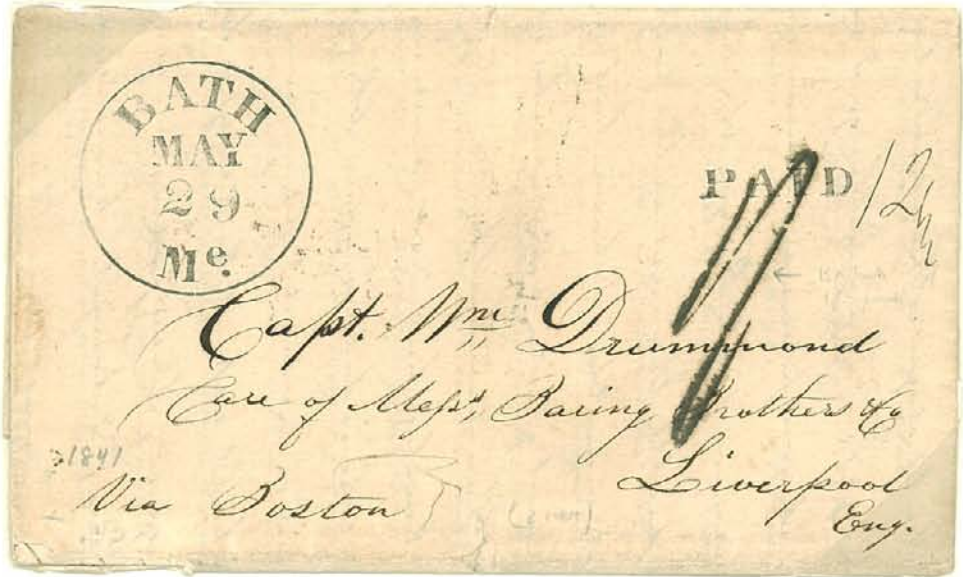 BATH
MAY
29
Me.
PAID 12½
Capt. Wm Drummond
Care of Messrs Baring Brothers & Co
Liverpool
Eng.
1841
Via Boston